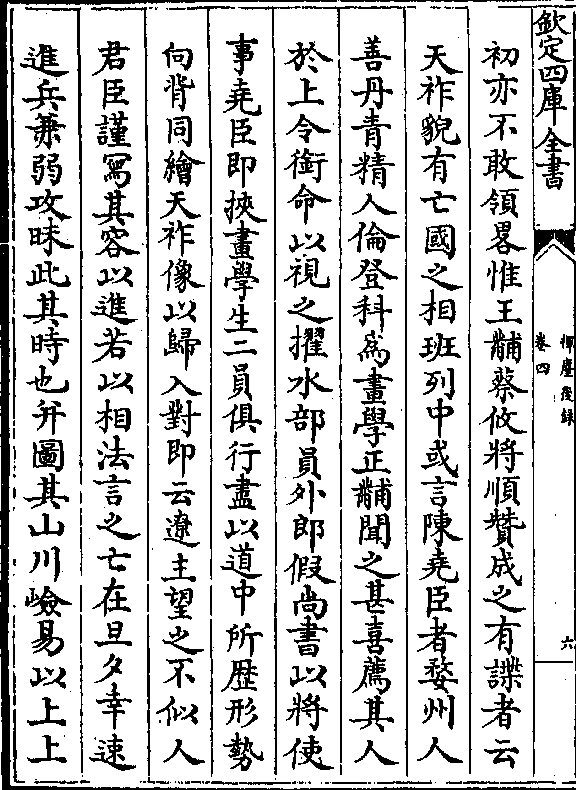 欽定四庫全書
揮麈後録
卷四
六
初亦不敢領畧惟王黼蔡攸將順贊成之有諜者云
天祚貌有亡國之相班列中或言陳堯臣者婺州人
善丹青精人倫登科為畫學正黼聞之甚喜薦其人
於上令銜命以視之擢水部員外郎假尚書以將使
事堯臣即挾畫學生二員俱行盡以道中所歴形勢
向背同繪天祚像以歸入對即云遼主望之不似人
君臣謹寫其容以進若以相法言之亡在旦夕幸速
進兵兼弱攻昧此其時也并圖其山川嶮易以上上